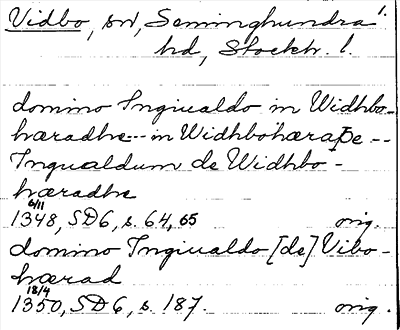 Vidbo, sn, Seminghundra
hd, Stockh. l.
domino Ingiualdo in Widhbo-
hæradhe --- in Widhbohæraþe --
Ingualdum de Widhbo-
hæradhe
6/11
1348, SD 6, s. 64, 65 orig.
domino Ingiualdo [de] Vibo-
hærad
18/4
1350, SD 6, s. 187. orig.